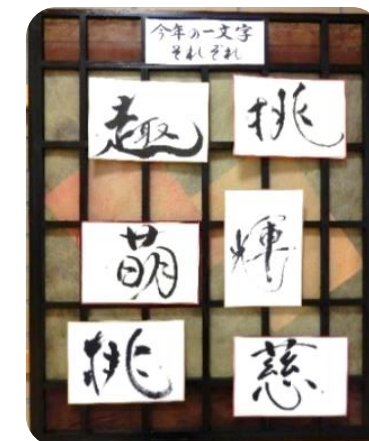 今年の一文字
それぞれ
趣
挑
萌
輝
挑
慈